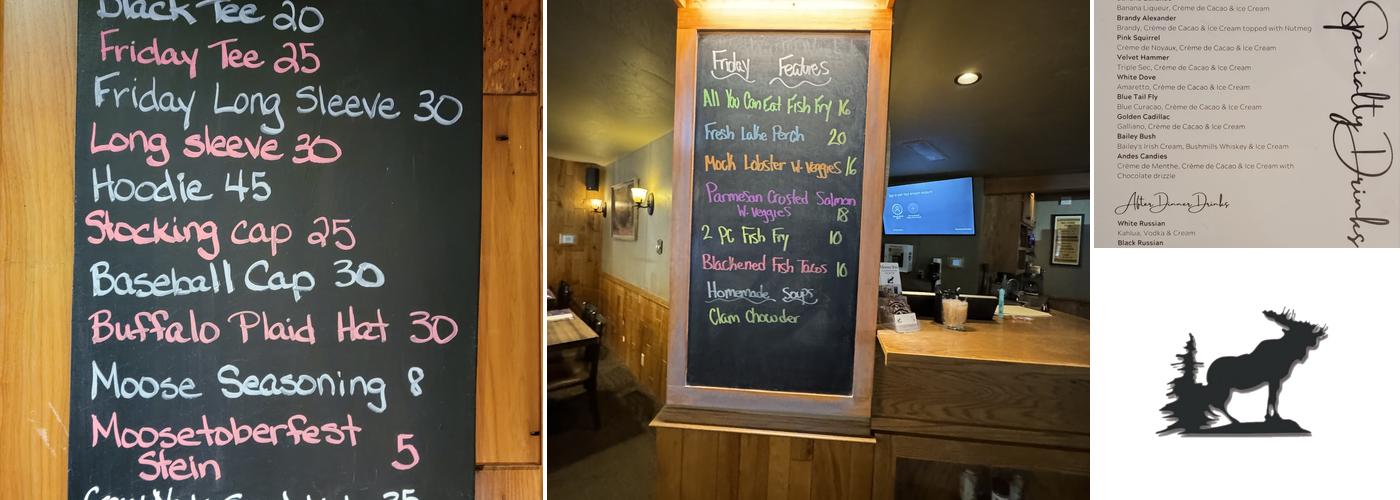 Black Tee 20
Friday Tee 25
Friday Long Sleeve 30
Long sleeve 30
Hoodie 45
Stocking cap 25
Baseball Cap 30
Buffalo Plaid Hat 30
Moose Seasoning 8
Moosetoberfest
Stein 5
Friday Features
All You Can Eat Fish Fry 16
Fresh Lake Perch 20
Mock Lobster W. Veggies 16
Parmesan Crusted Salmon
W. Veggies 18
2 PC Fish Fry 10
Blackened Fish Tacos 10
Homemade Soups
Clam Chowder
Banana Liqueur, Crème de Cacao & Ice Cream
Brandy Alexander
Brandy, Crème de Cacao & Ice Cream topped with Nutmeg
Pink Squirrel
Crème de Noyaux, Crème de Cacao & Ice Cream
Velvet Hammer
Triple Sec, Crème de Cacao & Ice Cream
White Dove
Amaretto, Crème de Cacao & Ice Cream
Blue Tail Fly
Blue Curacao, Crème de Cacao & Ice Cream
Golden Cadillac
Galliano, Crème de Cacao & Ice Cream
Bailey Bush
Bailey's Irish Cream, Bushmills Whiskey & Ice Cream
Andes Candies
Crème de Menthe, Crème de Cacao & Ice Cream with
Chocolate drizzle
After Dinner Drinks
White Russian
Kahlua, Vodka & Cream
Black Russian
Specialty Drinks